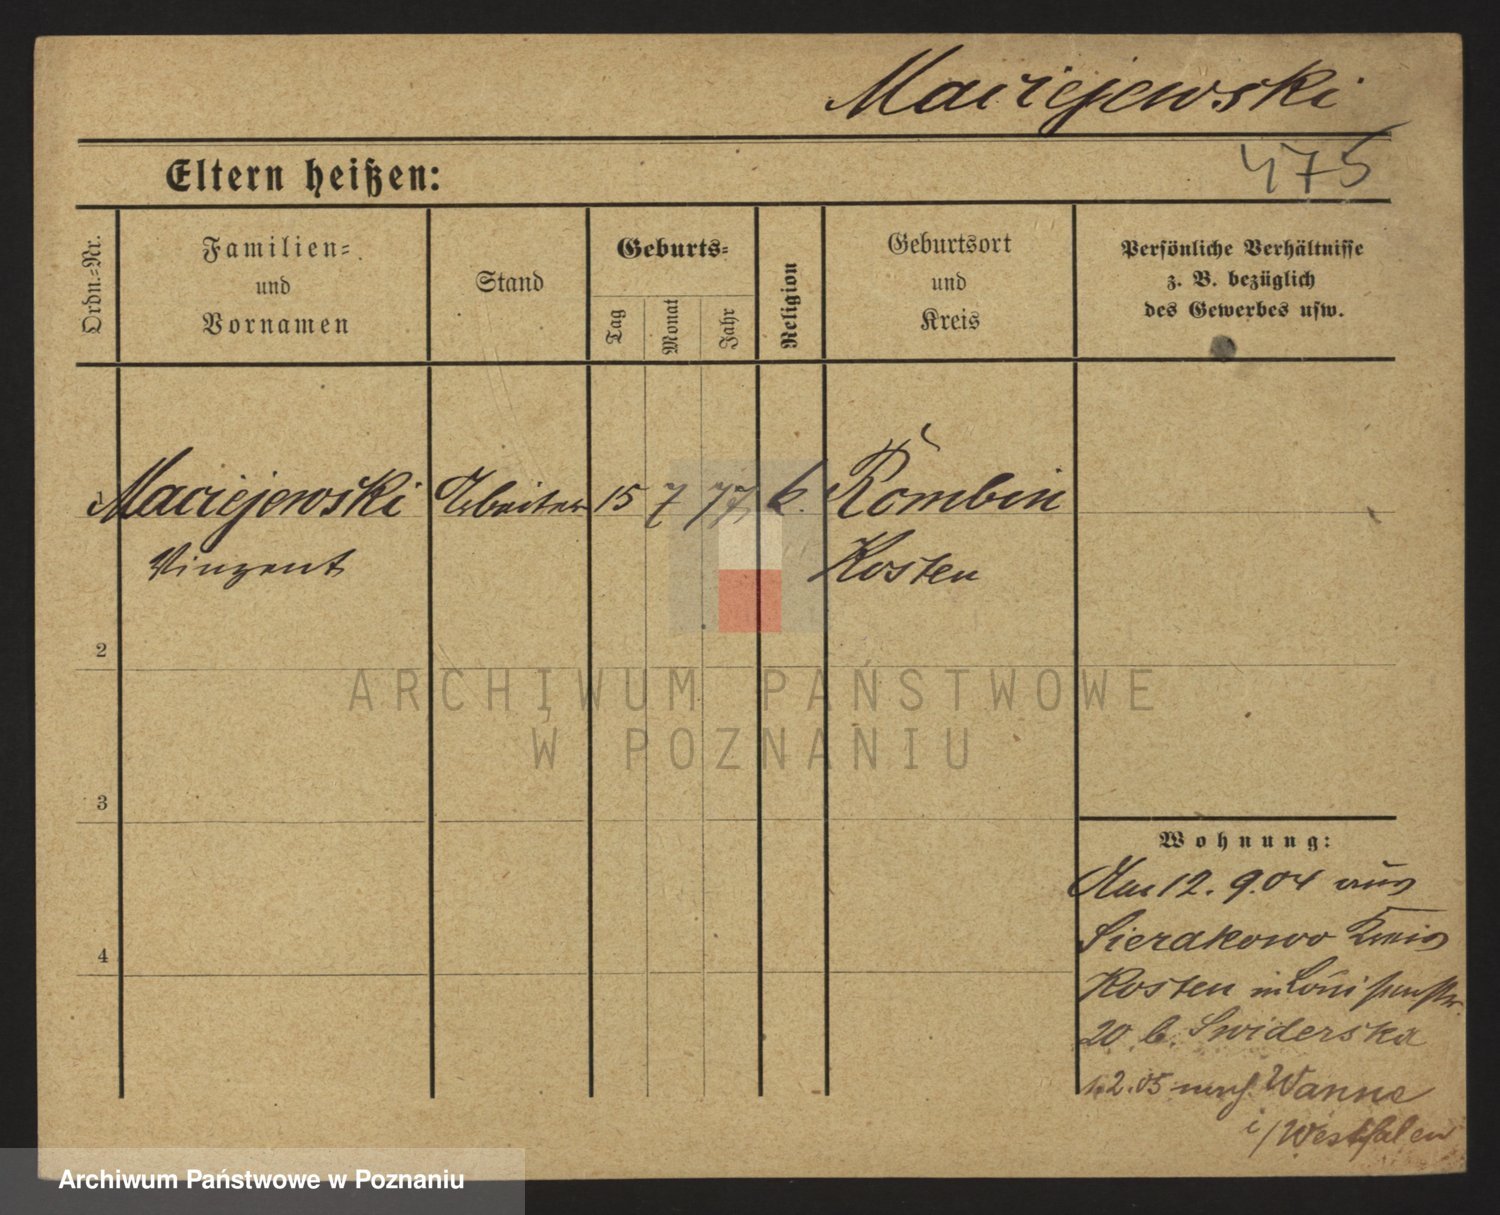 Maciejewski
475
Eltern heißen:
Ordn.-Nr.
Familien-
und
Vornamen
Stand
Geburts-
Tag
Monat
Jahr
Religion
Geburtsort
und
Kreis
Persönliche Verhältnisse
z. B. bezüglich
des Gewerbes usw.
1 Maciejewski Arbeiter 15 7 77 k. Rombin
Vinzent Kosten
2
ARCHIWUM PAŃSTWOWE
W POZNANIU
3
Wohnung:
Am 12. 9.04 aus
Sierakowo Kreis
Kosten in Louisenstr.
20 b. Swiderska
1.2.05 nach Wanne
i/Westfalen
4
Archiwum Państwowe w Poznaniu